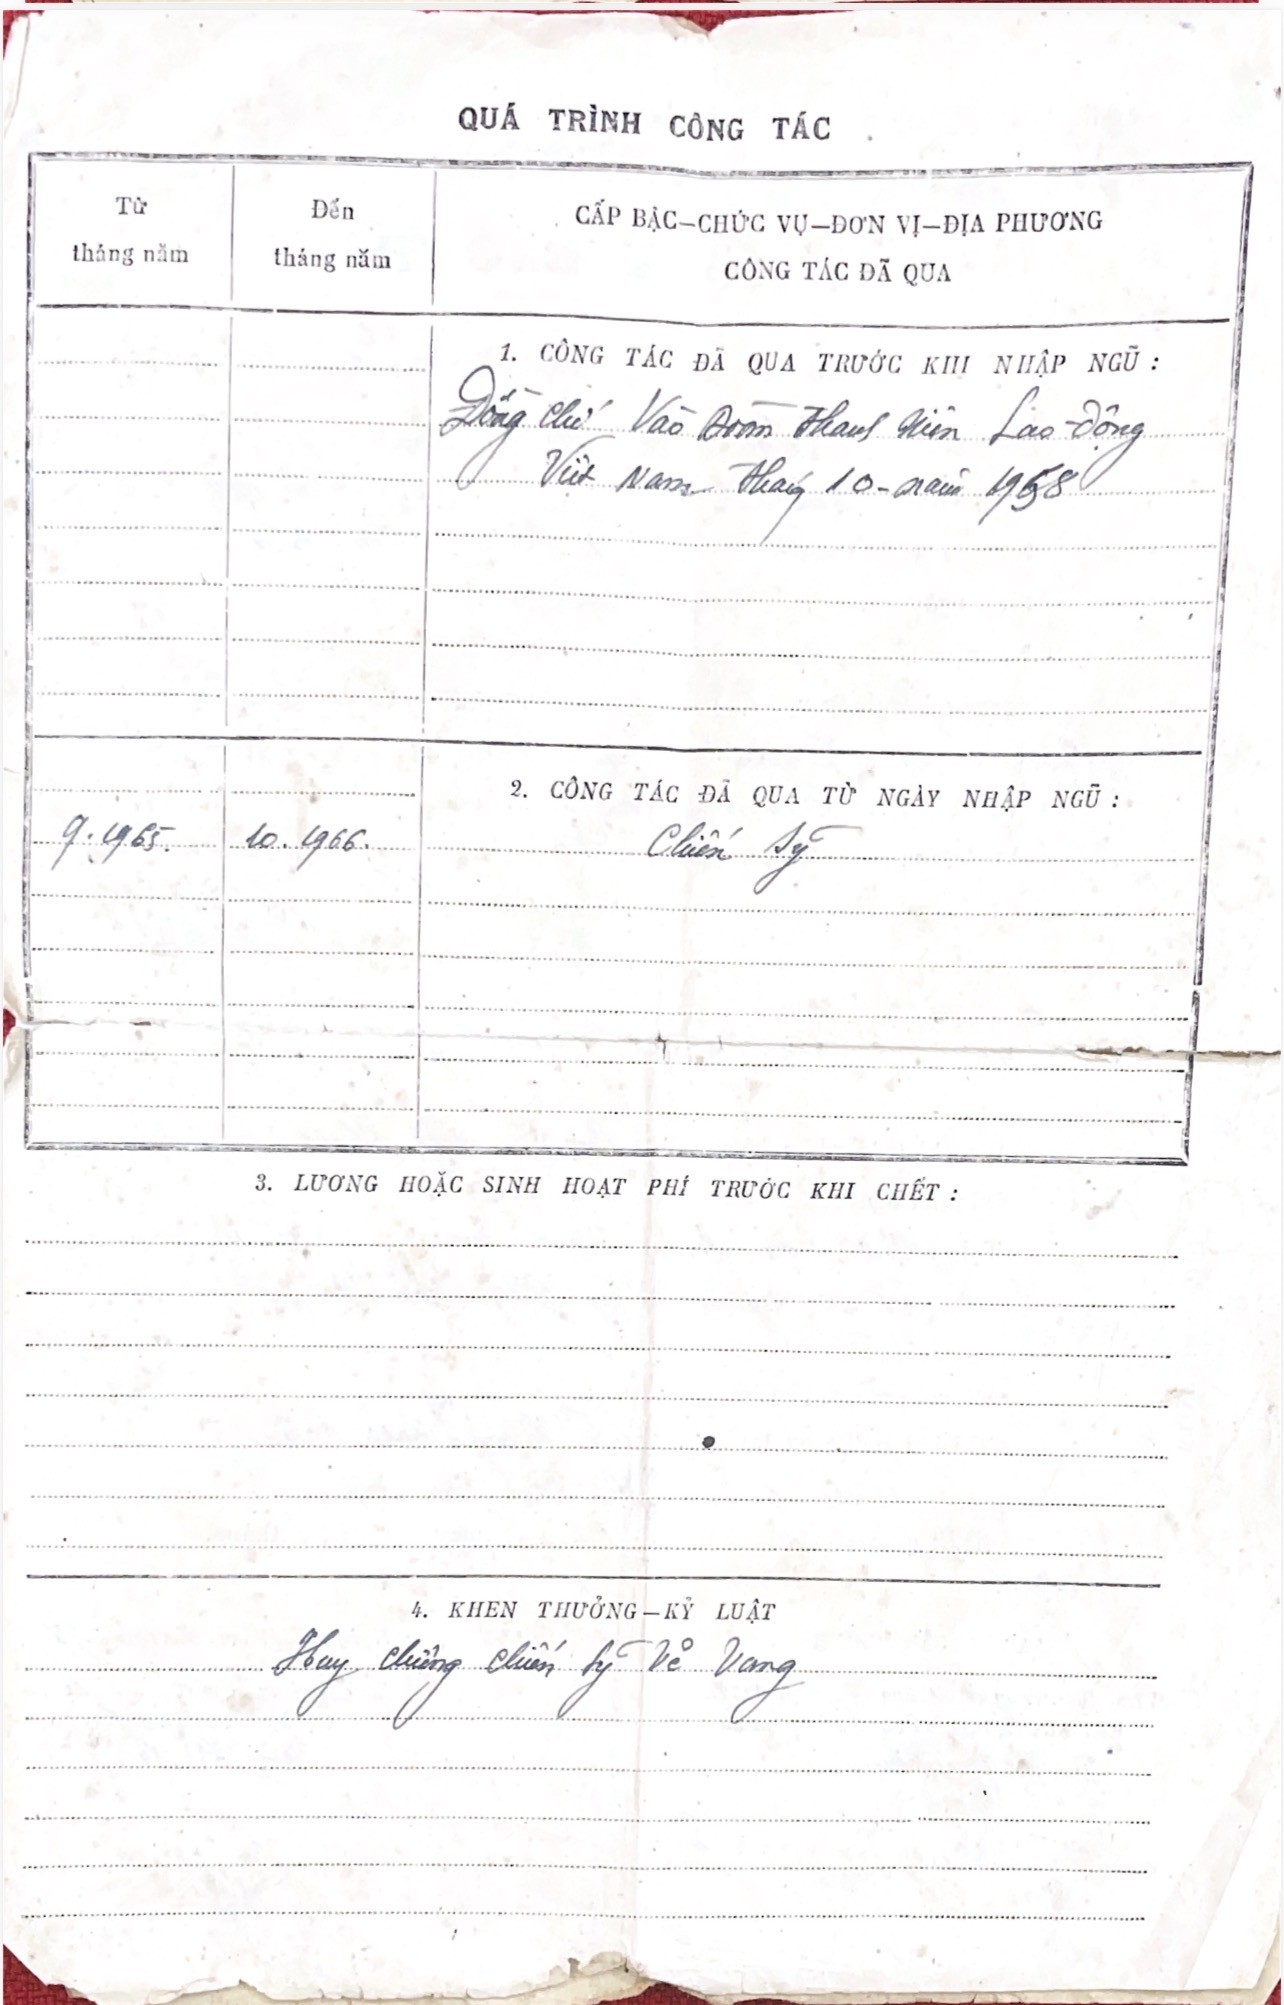 QUÁ TRÌNH CÔNG TÁC
Từ
tháng năm
Đến
tháng năm
CẤP BẬC—CHỨC VỤ—ĐƠN VỊ—ĐỊA PHƯƠNG
CÔNG TÁC ĐÃ QUA
1. CÔNG TÁC ĐÃ QUA TRƯỚC KHI NHẬP NGŨ :
Đồng chí Vào Đoàn thanh Niên Lao-Động
Việt Nam tháng 10-năm 1958
2. CÔNG TÁC ĐÃ QUA TỪ NGÀY NHẬP NGŨ :
9.1965. 10.1966. Chiến sỹ
3. LƯƠNG HOẶC SINH HOẠT PHÍ TRƯỚC KHI CHẾT :
4. KHEN THƯỞNG—KỶ LUẬT
Huy chương chiến sỹ Vẻ Vang